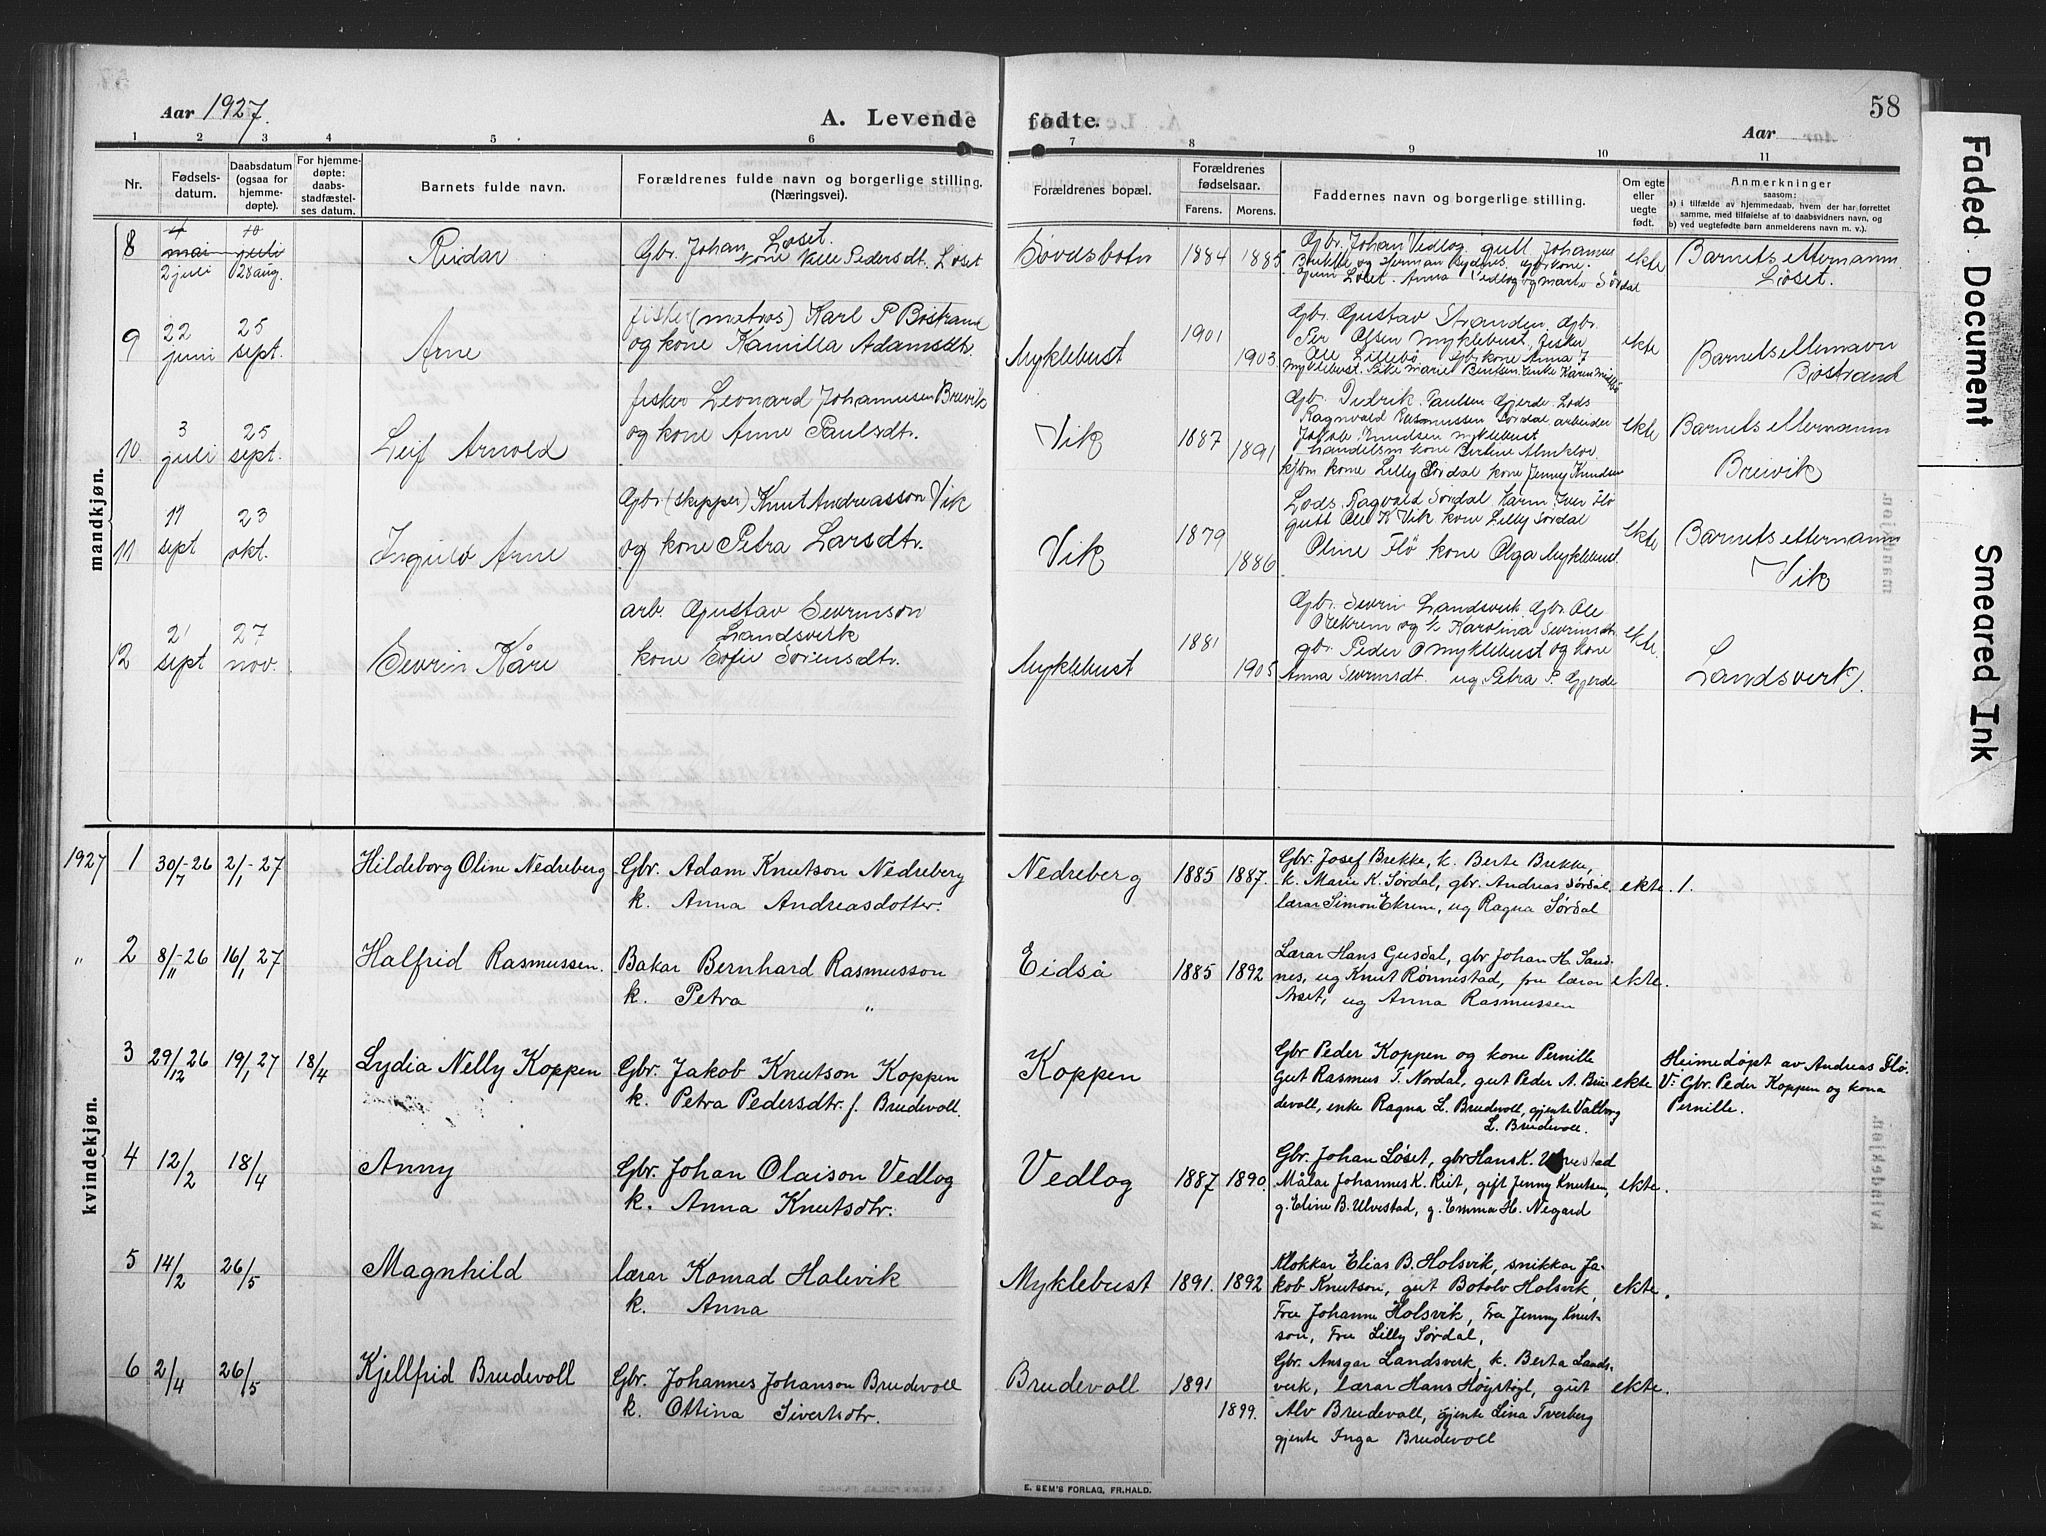 58
Aar 1927.
A. Levende fødte.
Aar
1 2 3 4 5 6 7 8 9 10 11
Nr.
Fødsels-
datum.
Daabsdatum
(ogsaa for
hjemme-
døpte).
For hjemme-
døpte:
daabs-
stadfæstel-
ses datum.
Barnets fulde navn.
Forældrenes fulde navn og borgerlige stilling.
(Næringsvei).
Forældrenes bopæl.
Forældrenes
fødselsaar.
Farens. Morens.
Faddernes navn og borgerlige stilling.
Om egte
eller
uegte
født.
Anmerkninger
saasom:
a) i tilfælde av hjemmedaab, hvem der har forrettet
samme, med tilføielse af to daabsvidners navn, og
b) ved uegtefødte barn anmelderens navn m. v.).
mandkjøn.
8
4 mai
2 juli
10 juli
28 aug.
Reidar
Gbr. Johan Løset.
kone Pedersdt. Løset
Søvdsbotn
1884 1885
Gbr. Johan Vedlog gutt Johannes
Brekke og Herman Bydnes, gbrkone
Løset. Anna Vedlog og Marie Sørdal
ekte
Barnets etternamn
Løset.
9
22
juni
25
sept.
Arne
fisker (matros) Karl P Bøstrand
og kone Kamilla Adamsdtr.
Myklebust
1901
1903
Gbr. Gustav Stranden. Gbr.
Per Olsen Myklebust, fisker
Ole Lillebø Gbrkone Anna J
Myklebust. Marie Bentsen. Enke Karen
ekte
Barnets etternavn
Bøstrand
10.
3
juli
25
sept.
Leif Arnold
fisker Leonard Johannesen Breivik
og kone Anne Paulsdtr.
Vik
1887
1891
Gbr. Didrik Paulsen Gjerde. Lods
Ragnvald Rasmussen Sørdal arbeider
Jakob Knudsen Myklebust
handelsm kone Bertine Almklov
kjøm kone Lilly Sørdal kone Jenny Knudsen
ekte
Barnets etternamn
Breivik
11
17
sept
23
okt.
Ingulv Arne
Gbr. (skipper) Knut Andreasson Vik
og kone Petra Larsdtr.
Vik
1879
1886
Lods Ragvald Sørdal Iver Flø
gutt Ole K Vik kone Lilly Sørdal
Oline Flø kone Olga Myklebust.
ekte
Barnets etternamn
Vik
12
21
sept
27
nov.
Sevrin Kåre
arb. Gustav Sevrinson
Landsverk
kone Sofie Sørensdtr.
Myklebust
1881
1905
Gbr. Sevrin Landsverk Gbr. Ole
og k Karolina Sevrinsdt.
gbr. Peder O Myklebust og kone
Anna Sevrinsdt ug. Petra P. Gjerde
ekte.
Landsverk.
kvindekjøn.
1927
1
30/7-26
2/1-27
Hildeborg Oline Nedreberg
Gbr. Adam Knutson Nedreberg
k. Anna Andreasdotter.
Nedreberg
1885 1887.
Gbr. Josef Brekke, k. Berte Brekke,
k. Marie K. Sørdal, gbr. Andreas Sørdal,
lærar Simon Ekrem, ug Ragna Sørdal
ekte. 1.
"
2
8/11-26
16/1 27
Halfrid Rasmussen.
Bakar Bernhard Rasmusson
k. Petra "
Eidså
1885 1892
Lærar Hans Gusdal, gbr Johan H. Sand-
nes, ug Knut Rønnestad, fru lærar
Årset, ug Anna Rasmussen
ekte.
3
29/12 26
19/1 27
18/4
Lydia Nelly Koppen
Gbr. Jakob Knutson Koppen
k. Petra Pedersdtr. f. Brudevoll.
Koppen
Gbr Peder Koppen og kone Pernille
Gut Rasmus T. Nordal, gut Peder A. Bru-
devoll, enke Ragna L. Brudevoll, gjente Valborg
L. Brudevoll.
ekte
Heimedøpt av Andreas Flø.
V: Gbr. Peder Koppen og kona
Pernille.
4
12/2
18/4
Anny
Gbr. Johan Olaison Vedlog
k. Anna Knutsdtr.
Vedlog
1887 1890.
Gbr. Johan Løset, gbr Hans K. Ulvestad
Målar Johannes K. Reit, gift Jenny Knutsen,
g. Eline B. Ulvestad, g. Emma H. Negard
ekte.
5
14/2
26/5
Magnhild
lærar Konrad Halsvik
k. Anna
Myklebust
1891. 1892
Klokkar Elias B. Holsvik, snikkar Ja-
kob Knutson, gut Botolv Holsvik,
Fru Johanne Holsvik, Fru Jenny Knut-
son, Fru Lilly Sørdal,
ekte.
6
2/4
26/5
Kjellfrid Brudevoll
Gbr. Johannes Johanson Brudevoll
k. Ottina Sivertsdtr.
Brudevoll
1891
1899.
Gbr. Ansgar Landsverk, k. Berta Lands-
verk, lærar Hans Høgstøyl, gut
Alv Brudevoll, gjente Lina Tverberg
gjente Inga Brudevoll
ekte.
E. SEM'S FORLAG, FR.HALD.
Faded Document
Smeared Ink